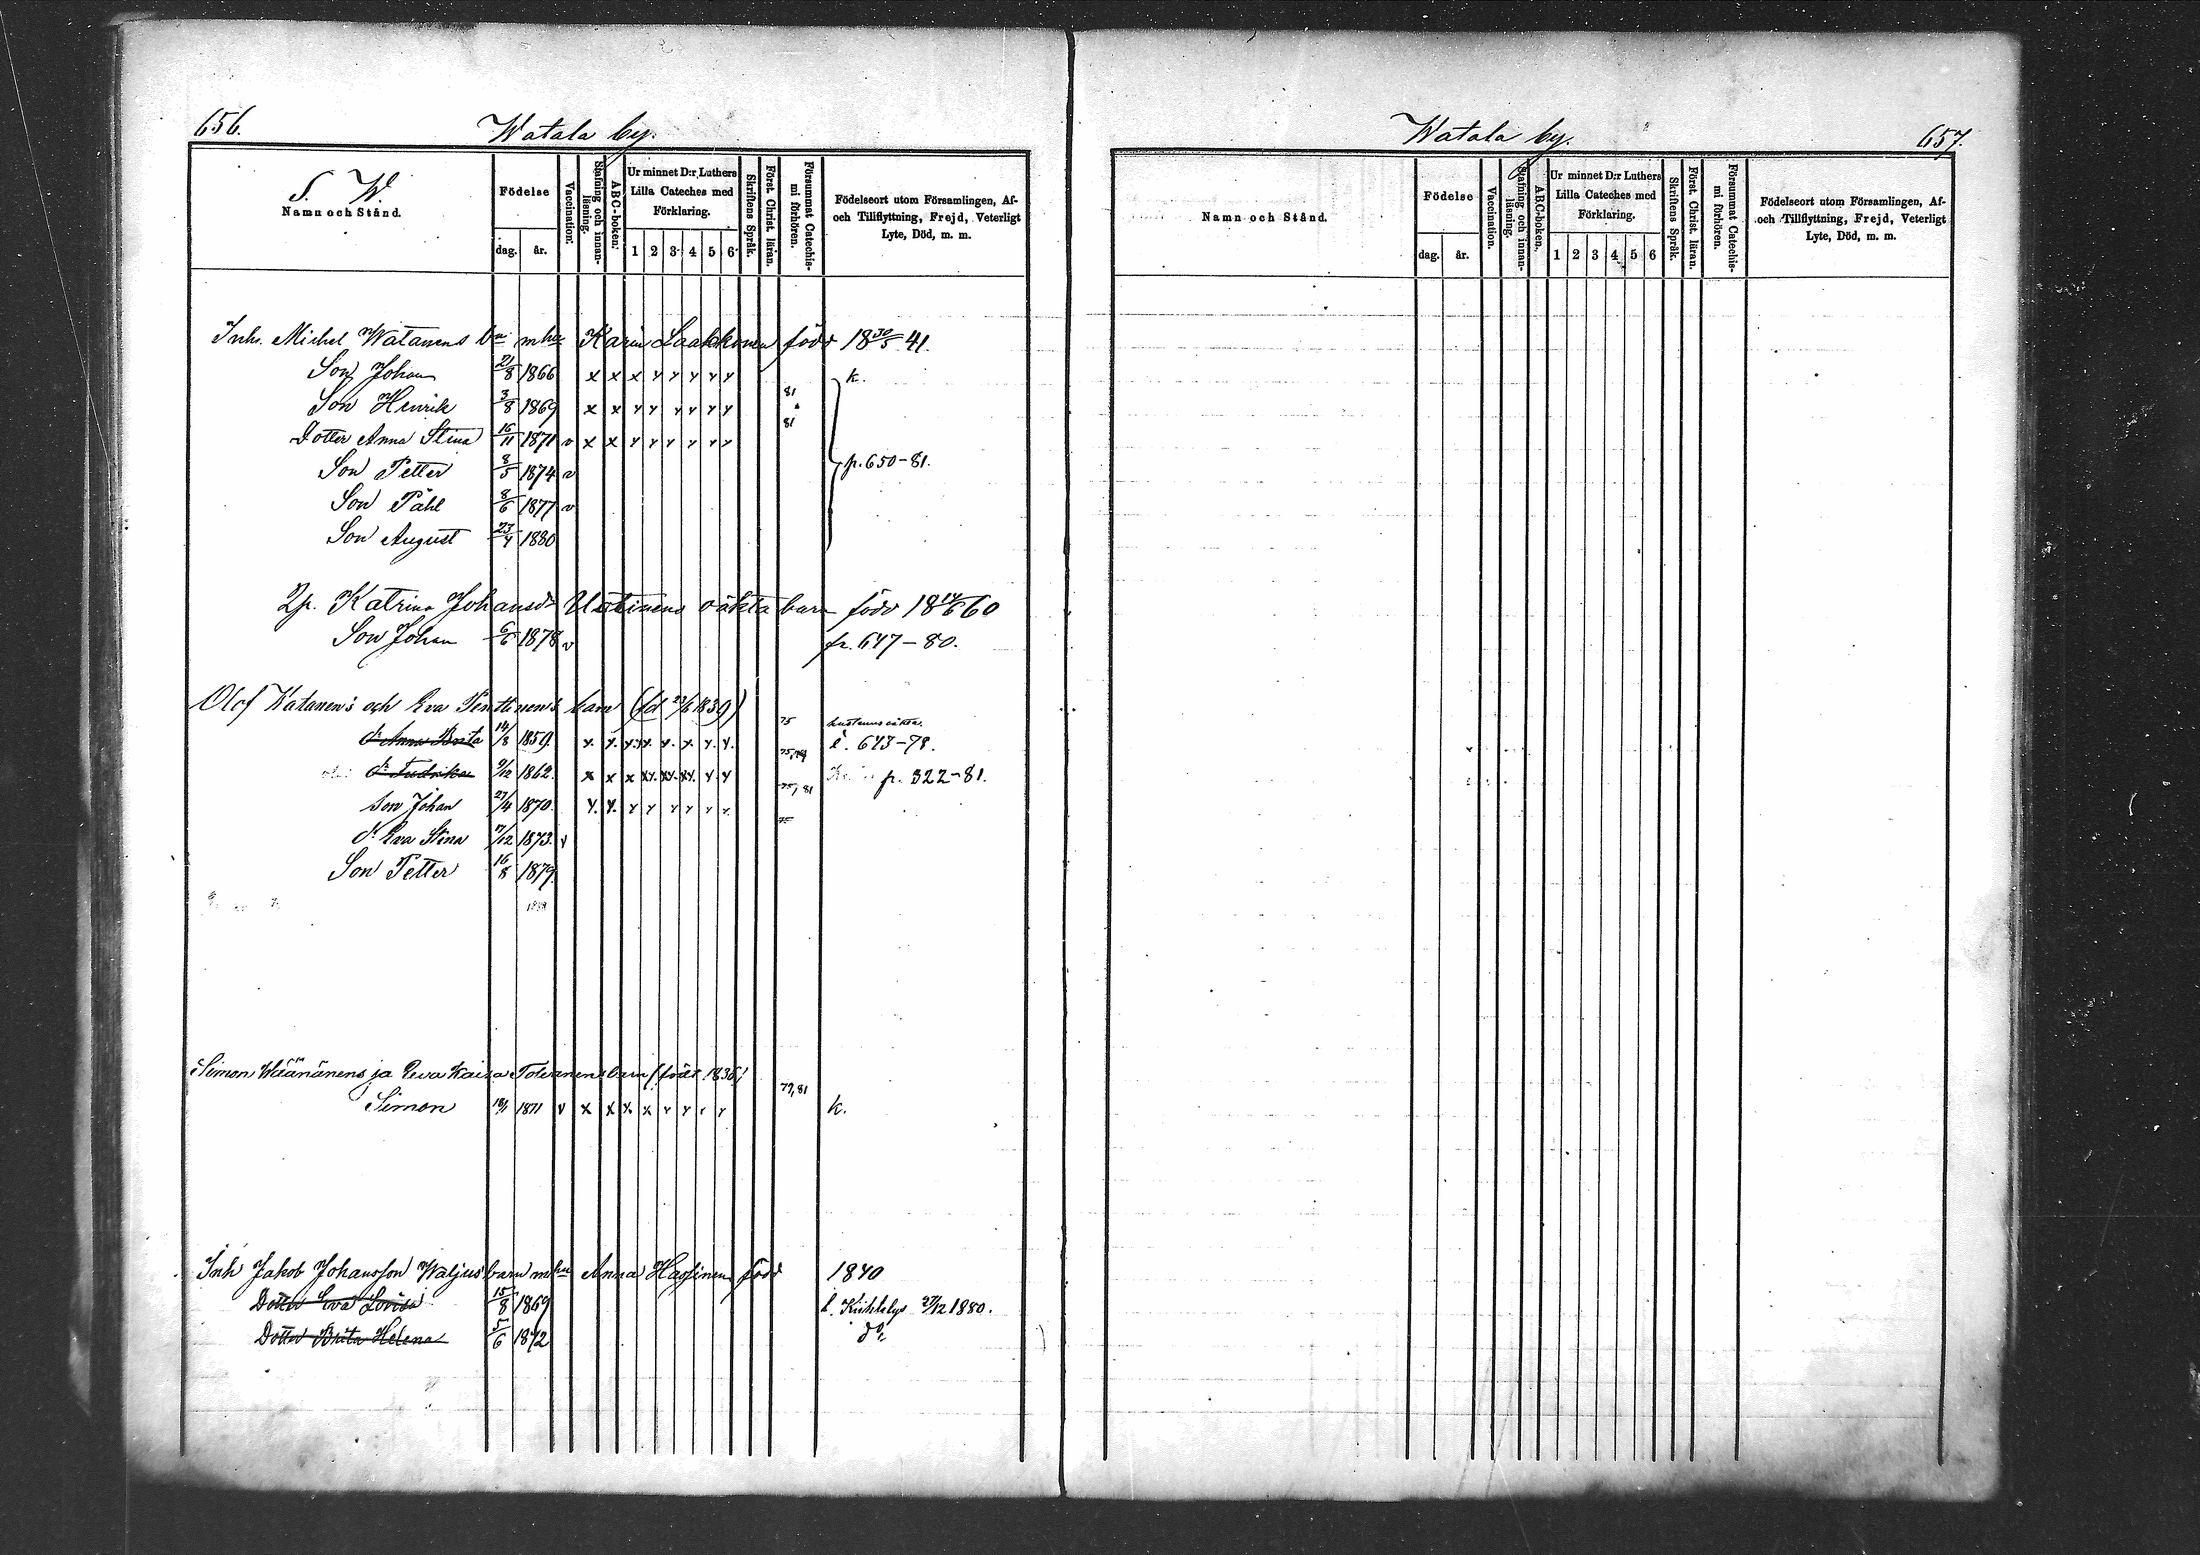 656. Watala by.
S. W.
Namn och Stånd.
Födelse
dag. år.
Vaccination.
Stafning och innan-läsning.
ABC-boken.
Ur minnet D:r Luthers Lilla Cateches med Förklaring.
1 2 3 4 5 6
Skriftens Språk.
Först. Christ. läran.
Försummat Catechis-mi förhören.
Födelseort utom Församlingen, Af- och Tillflyttning, Frejd, Veterligt Lyte, Död, m. m.
Inh. Michel Watanens bn mhu Karin Laakkonen född 18 30/5 41.
Son Johan 21/8 1866 x x x y y y y y k.
81
Son Henrik 3/8 1869 x x y y y y y y
81
Dotter Anna Stina 16/11 1871 v x x y y y y y y
Son Petter 8/5 1874 v p. 650-81.
Son Påhl 8/6 1877 v
Son August 23/4 1880
Qp. Katrina Johansdr oäkta barn född 18 14/6 60
Son Johan 6/6 1878 v fr. 647-80.
Olof Katanen's och Eva barn (fd 23/6 1839)
75
d:r Anna Brita 14/8 1859. x. y. y. y. y. y. y. y. i. 643-78.
d:r Fredrika 9/12 1862. x x x xy. xy. xy. y y p. 322-81.
75, 81
Son Johan 27/4 1870. y. y. y y y y y y
75
d:r Eva Stina 17/12 1873. v
Son Petter 16/8 1879.
Simon Wäänänens ja Eeva Kaisa Tolvanens barn (född 1836)
79, 81
Simon 18/1 1871 v x x x x y y y y k.
Inh Jakob Johansson Waljus barn mhu Anna Hassinen född 1840
Dotter Eva Lovisa 15/8 1869 i. Kiihtelys 27/12 1880.
Dotter Brita Helena 5/6 1872 do
Watala by. 657.
Namn och Stånd.
Födelse
dag. år.
Vaccination.
Stafning och innan-läsning.
ABC-boken.
Ur minnet D:r Luthers Lilla Cateches med Förklaring.
1 2 3 4 5 6
Skriftens Språk.
Först. Christ. läran.
Försummat Catechis-mi förhören.
Födelseort utom Församlingen, Af- och Tillflyttning, Frejd, Veterligt Lyte, Död, m. m.